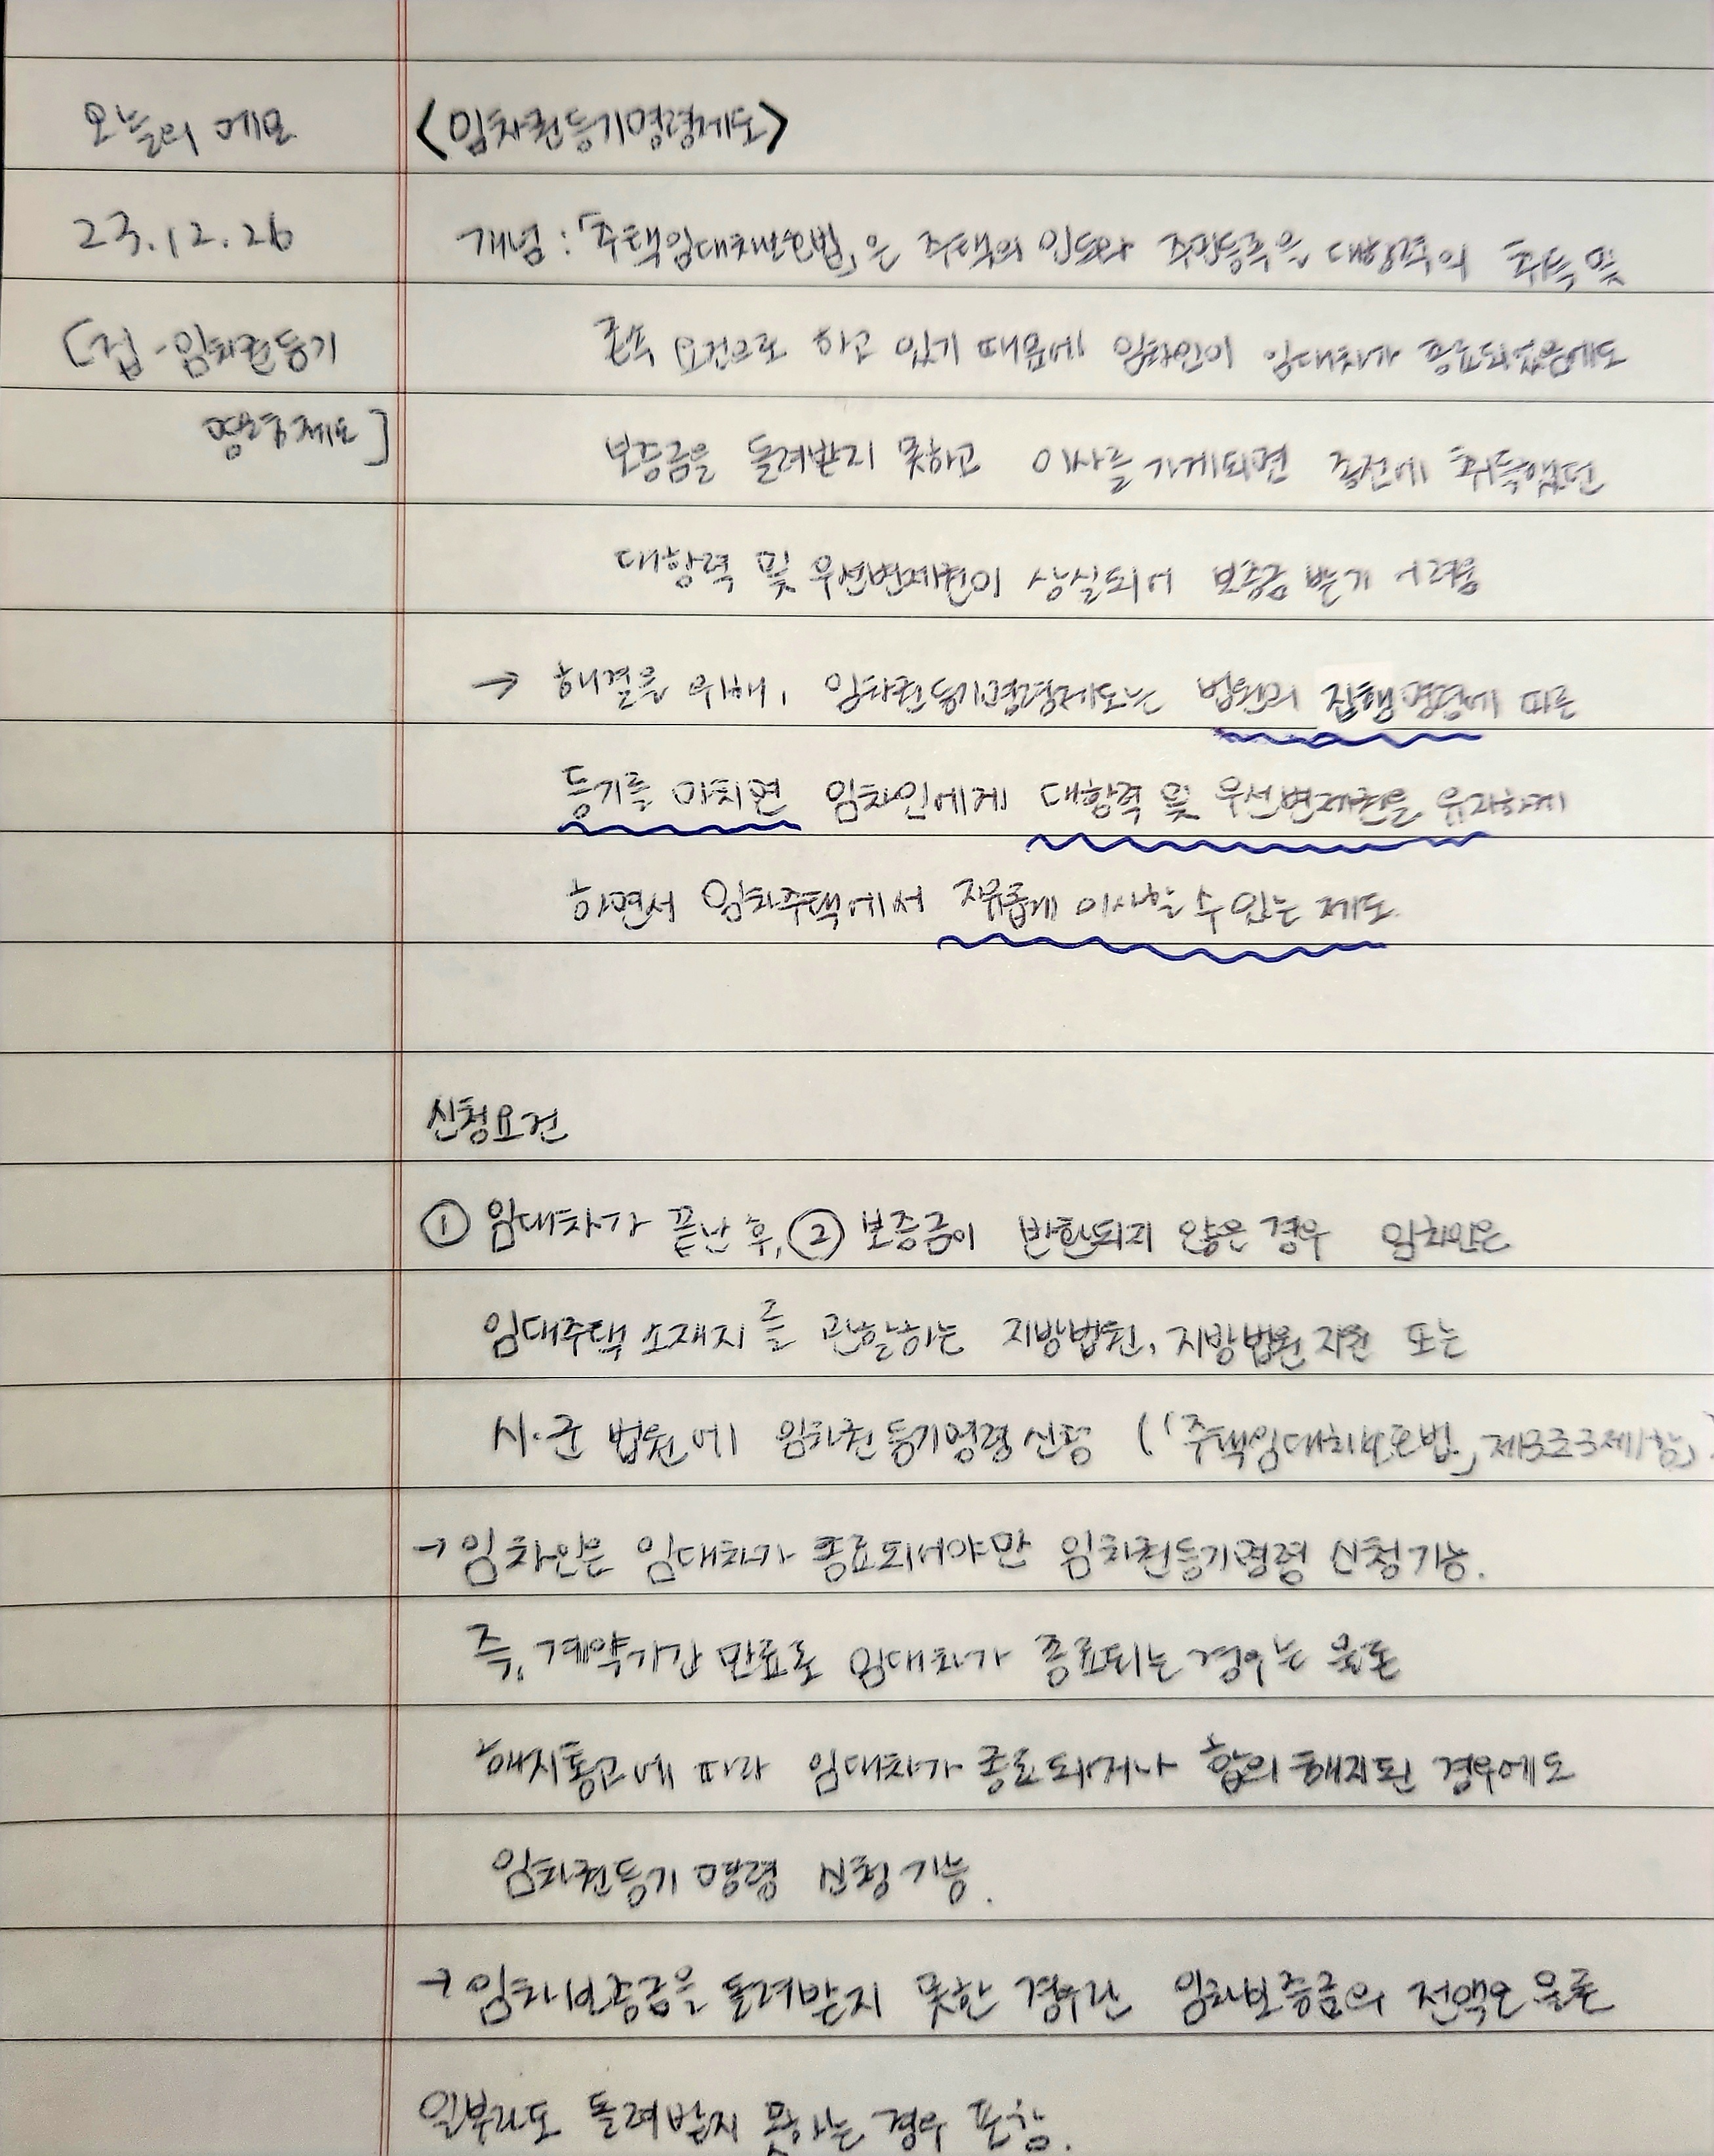 오늘의 메모
23.12.26
[집 - 임차권등기
명령제도]
<임차권등기명령제도>
개념 : 「주택임대차보호법」은 주택의 인도와 주민등록을 대항력의 취득 및
존속 요건으로 하고 있기 때문에 임차인이 임대차가 종료되었음에도
보증금을 돌려받지 못하고 이사를 가게되면 종전에 취득했던
대항력 및 우선변제권이 상실되어 보증금 받기 어려움
→ 해결을 위해, 임차권등기명령제도는 법원의 집행명령에 따른
등기를 마치면 임차인에게 대항력 및 우선변제권을 유지하게
하면서 임차주택에서 자유롭게 이사할 수 있는 제도.
신청요건
① 임대차가 끝난 후, ② 보증금이 반환되지 않은 경우 임차인은
임대주택 소재지를 관할하는 지방법원, 지방법원 지원 또는
시·군 법원에 임차권등기명령 신청 (「주택임대차보호법」 제3조3제1항)
→ 임차인은 임대차가 종료되어야만 임차권등기명령 신청가능.
즉, 계약기간 만료로 임대차가 종료되는 경우는 물론
해지통고에 따라 임대차가 종료되거나 합의 해지된 경우에도
임차권등기 명령 신청 가능.
→ 임차보증금을 돌려받지 못한 경우란 임차보증금의 전액은 물론
일부라도 돌려받지 못하는 경우 포함.